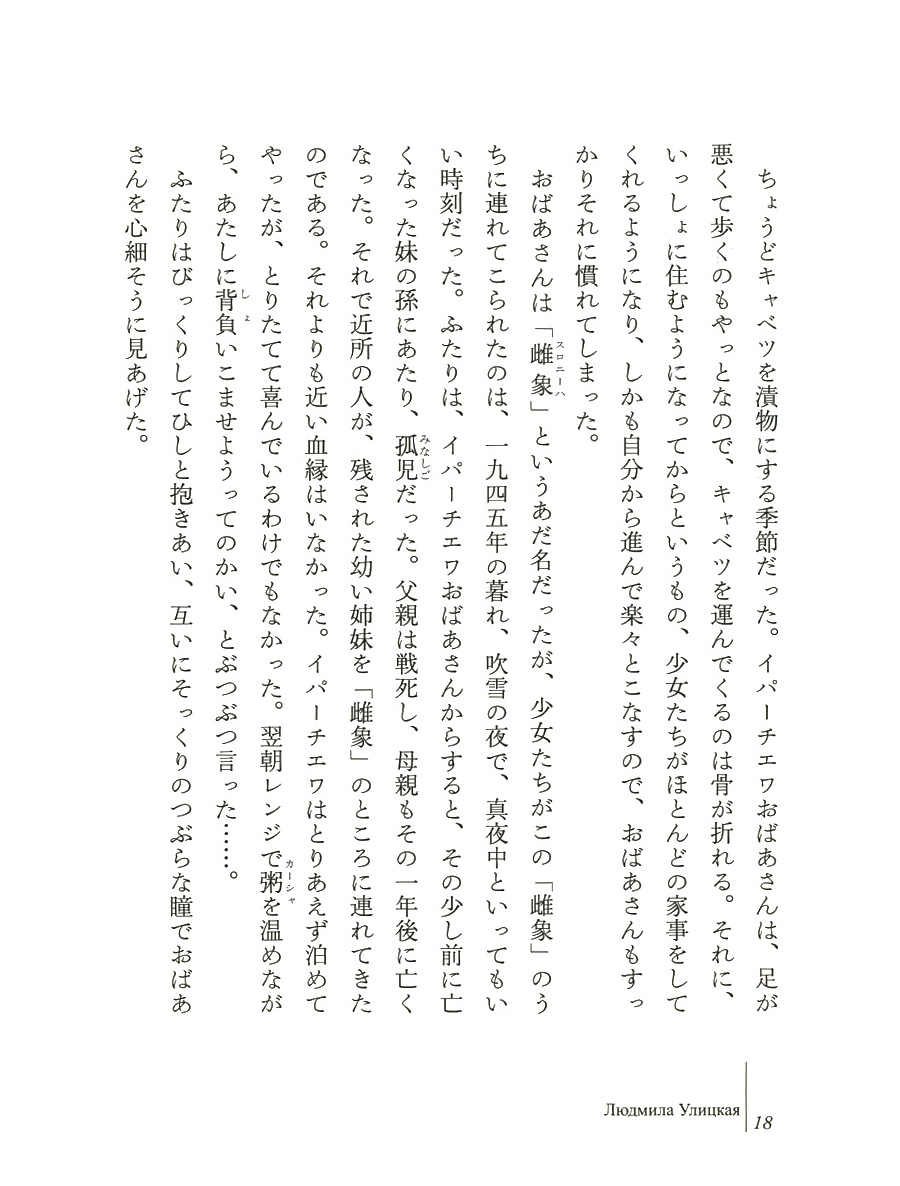 ちょうどキャベツを漬物にする季節だった。イパーチエワおばあさんは、足が
悪くて歩くのもやっとなので、キャベツを運んでくるのは骨が折れる。それに、
いっしょに住むようになってからというもの、少女たちがほとんどの家事をして
くれるようになり、しかも自分から進んで楽々とこなすので、おばあさんもすっ
かりそれに慣れてしまった。
おばあさんは「雌象」というあだ名だったが、少女たちがこの「雌象」のう
スロニーハ
ちに連れてこられたのは、一九四五年の暮れ、吹雪の夜で、真夜中といってもい
い時刻だった。ふたりは、イパーチエワおばあさんからすると、その少し前に亡
くなった妹の孫にあたり、孤児だった。父親は戦死し、母親もその一年後に亡く
みなしご
なった。それで近所の人が、残された幼い姉妹を「雌象」のところに連れてきた
のである。それよりも近い血縁はいなかった。イパーチエワはとりあえず泊めて
やったが、とりたてて喜んでいるわけでもなかった。翌朝レンジで粥を温めなが
カーシャ
ら、あたしに背負いこませようってのかい、とぶつぶつ言った……。
しょ
ふたりはびっくりしてひしと抱きあい、互いにそっくりのつぶらな瞳でおばあ
さんを心細そうに見あげた。
Людмила Улицкая
18